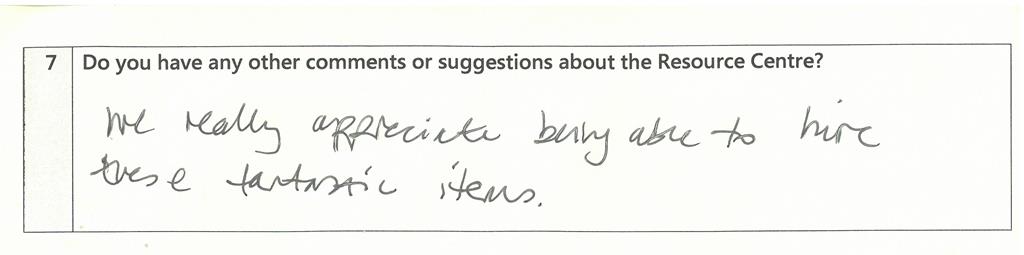 7 Do you have any other comments or suggestions about the Resource Centre?
We really appreciate being able to hire
these fantastic items.